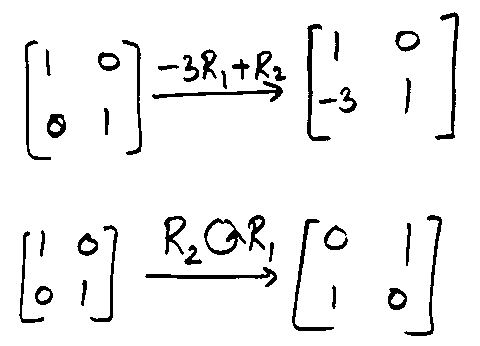 [1 0
0 1] -3R₁+R₂ → [1 0
-3 1]
[1 0
0 1] R₂ ↻ R₁ → [0 1
1 0]